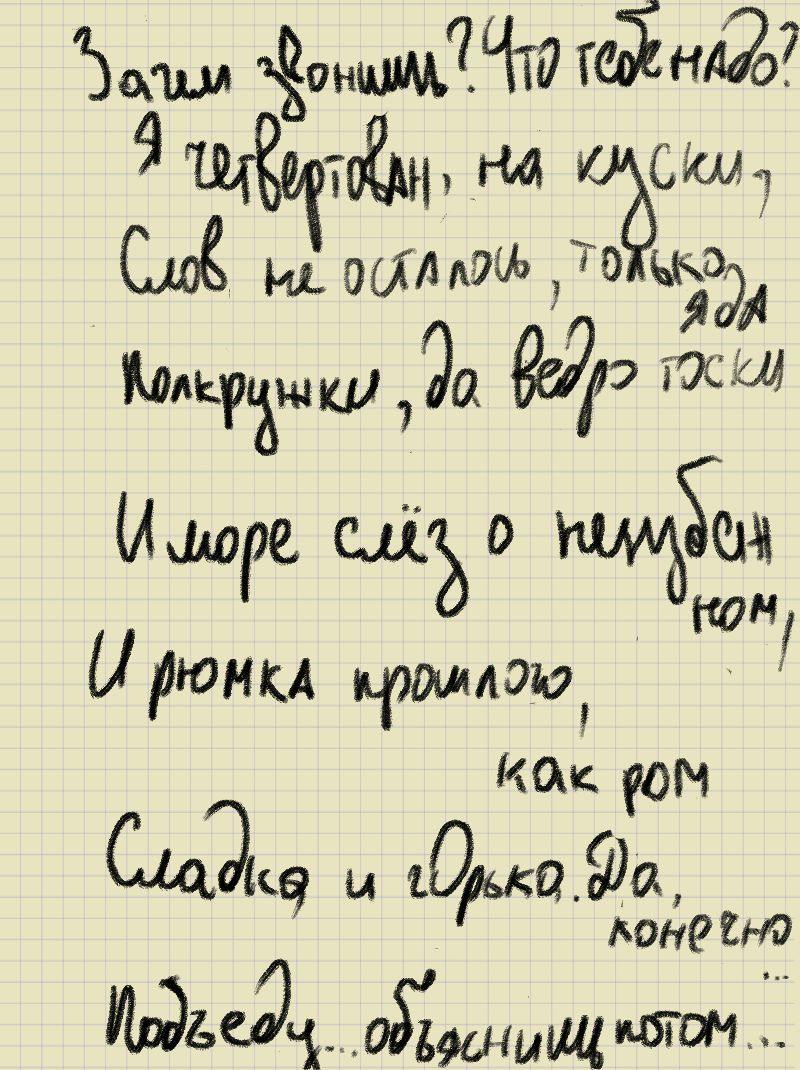 Зачем звонишь? Что тебе надо?
Я четвертован, на куски,
Слов не осталось, только
яда
Полкружки, да ведро тоски
И море слёз о несбыточ
ном,
И рюмка прошлого,
как ром
Сладка, и гОрька. Да,
конечно
...
Подъеду... объяснишь потом...